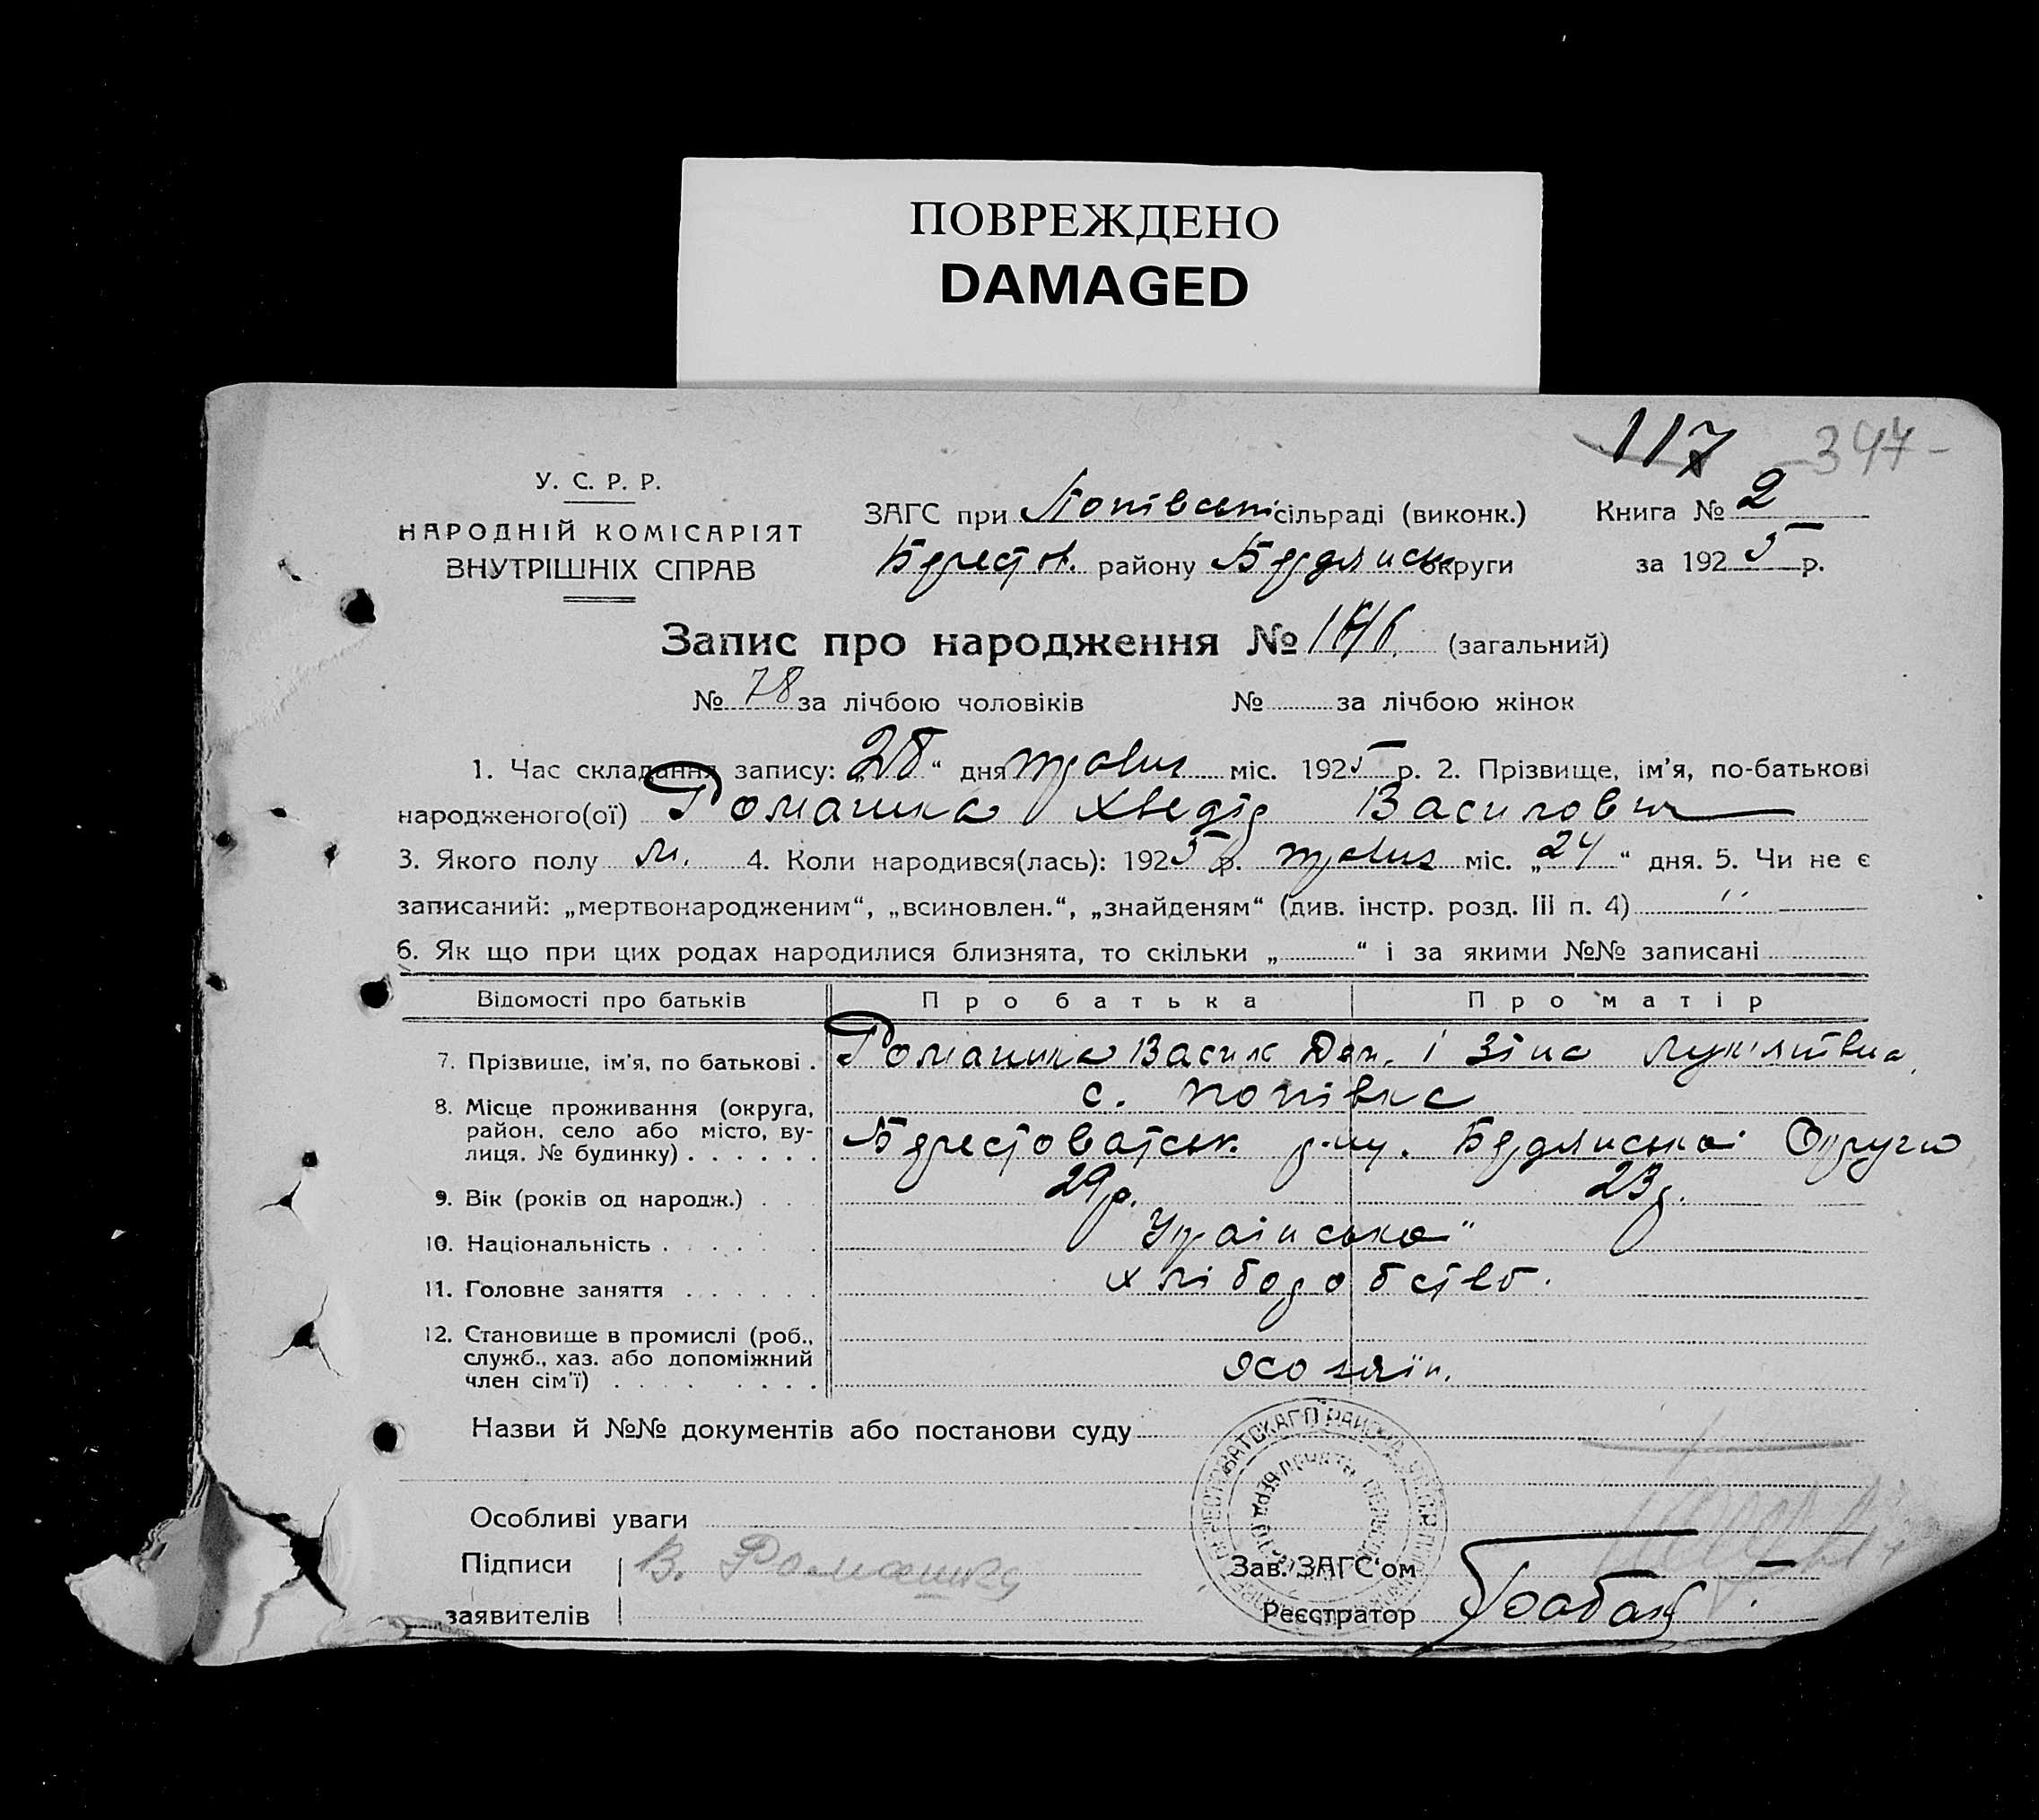 ПОВРЕЖДЕНО
DAMAGED
117 347
У. С. Р. Р.
НАРОДНІЙ КОМІСАРІЯТ
ВНУТРІШНІХ СПРАВ
ЗАГС при Попівській сільраді (виконк.) Книга № 2
Берестов. району Бердянськ округи за 1925 р.
Запис про народження № (загальний)
№ 78 за лічбою чоловіків № за лічбою жінок
1. Час складання запису: „28“ дня травня міс. 1925 р. 2. Прізвище, ім'я, по-батькові
народженого(ої) Ромашка Хведір Василович
3. Якого полу м. 4. Коли народився(лась): 1925 р. травня міс. „24“ дня. 5. Чи не є
записаний: „мертвонародженим“, „всиновлен.“, „знайденям“ (див. інстр. розд. III п. 4) "
6. Як що при цих родах народилися близнята, то скільки „ “ і за якими №№ записані
Відомості про батьків Про батька Про матір
7. Прізвище, ім'я, по батькові . Ромашка Василь Дем. і Зіна Лук'янівна
8. Місце проживання (округа, район, село або місто, вулиця, № будинку) с. Попівка
Берестоватськ. р-ну. Бердянської Округи
9. Вік (років од народж.) 29 р. 23 р.
10. Національність "Українська"
11. Головне заняття хліборобство.
12. Становище в промислі (роб., служб., хаз. або допоміжний член сім'ї) хозяїн.
Назви й №№ документів або постанови суду
Особливі уваги
Підписи В. Ромашка
заявителів
Зав. ЗАГС'ом
Реєстратор